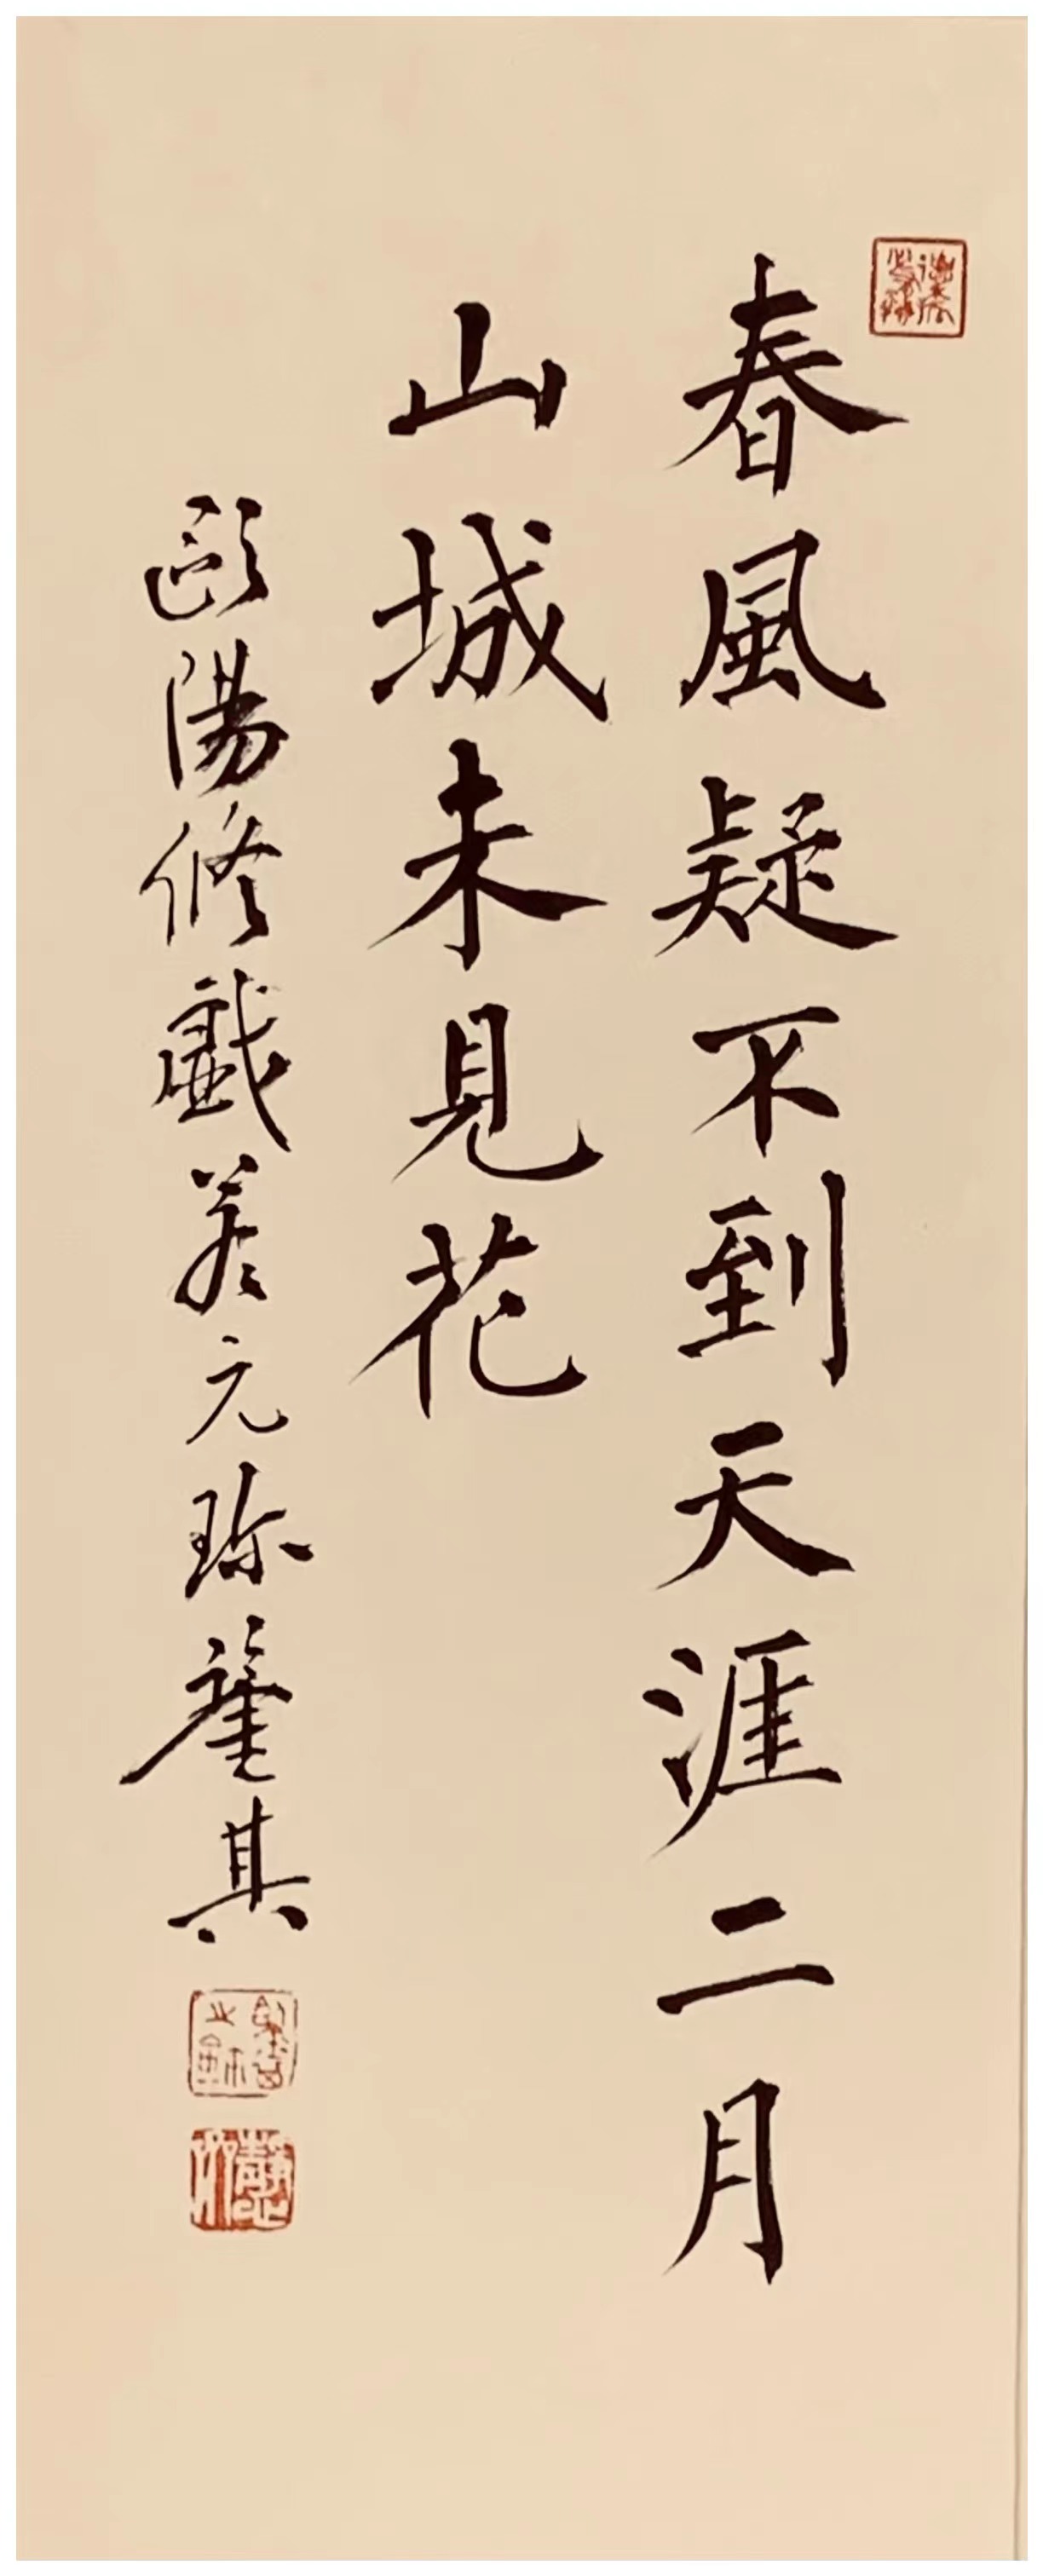 春風疑不到天涯二月
山城未見花
歐陽修戲答元珍
其